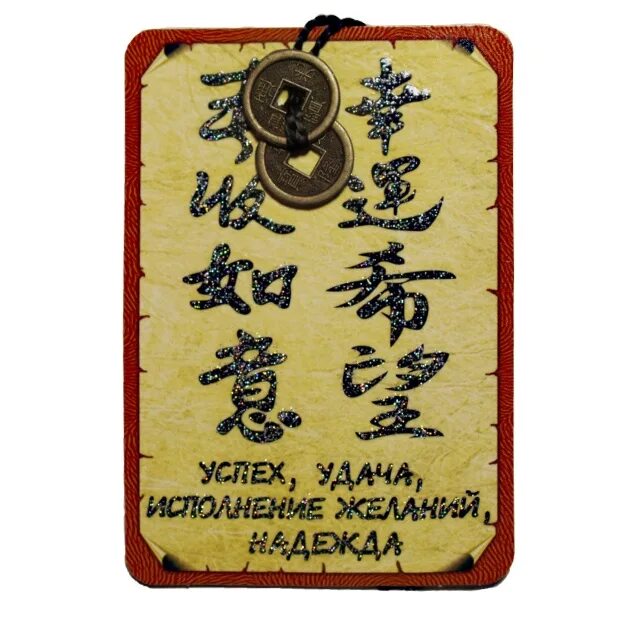 幸運希望
收如意
УСПЕХ, УДАЧА,
ИСПОЛНЕНИЕ ЖЕЛАНИЙ,
НАДЕЖДА